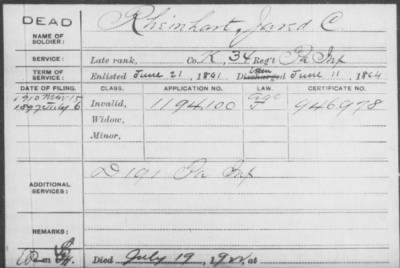 DEAD
NAME OF SOLDIER: Rheinhart, Jared C.
SERVICE: Late rank, Co. K, 34 Reg't Pa Inf
TERM OF SERVICE: Enlisted June 21, 1861 Discharged June 11, 1864
DATE OF FILING. CLASS. APPLICATION NO. LAW. CERTIFICATE NO.
1897 July 6 Invalid, 1194100 946978
Widow,
Minor,
ADDITIONAL SERVICES: D 191 Pa Inf
REMARKS:
Died July 19, at